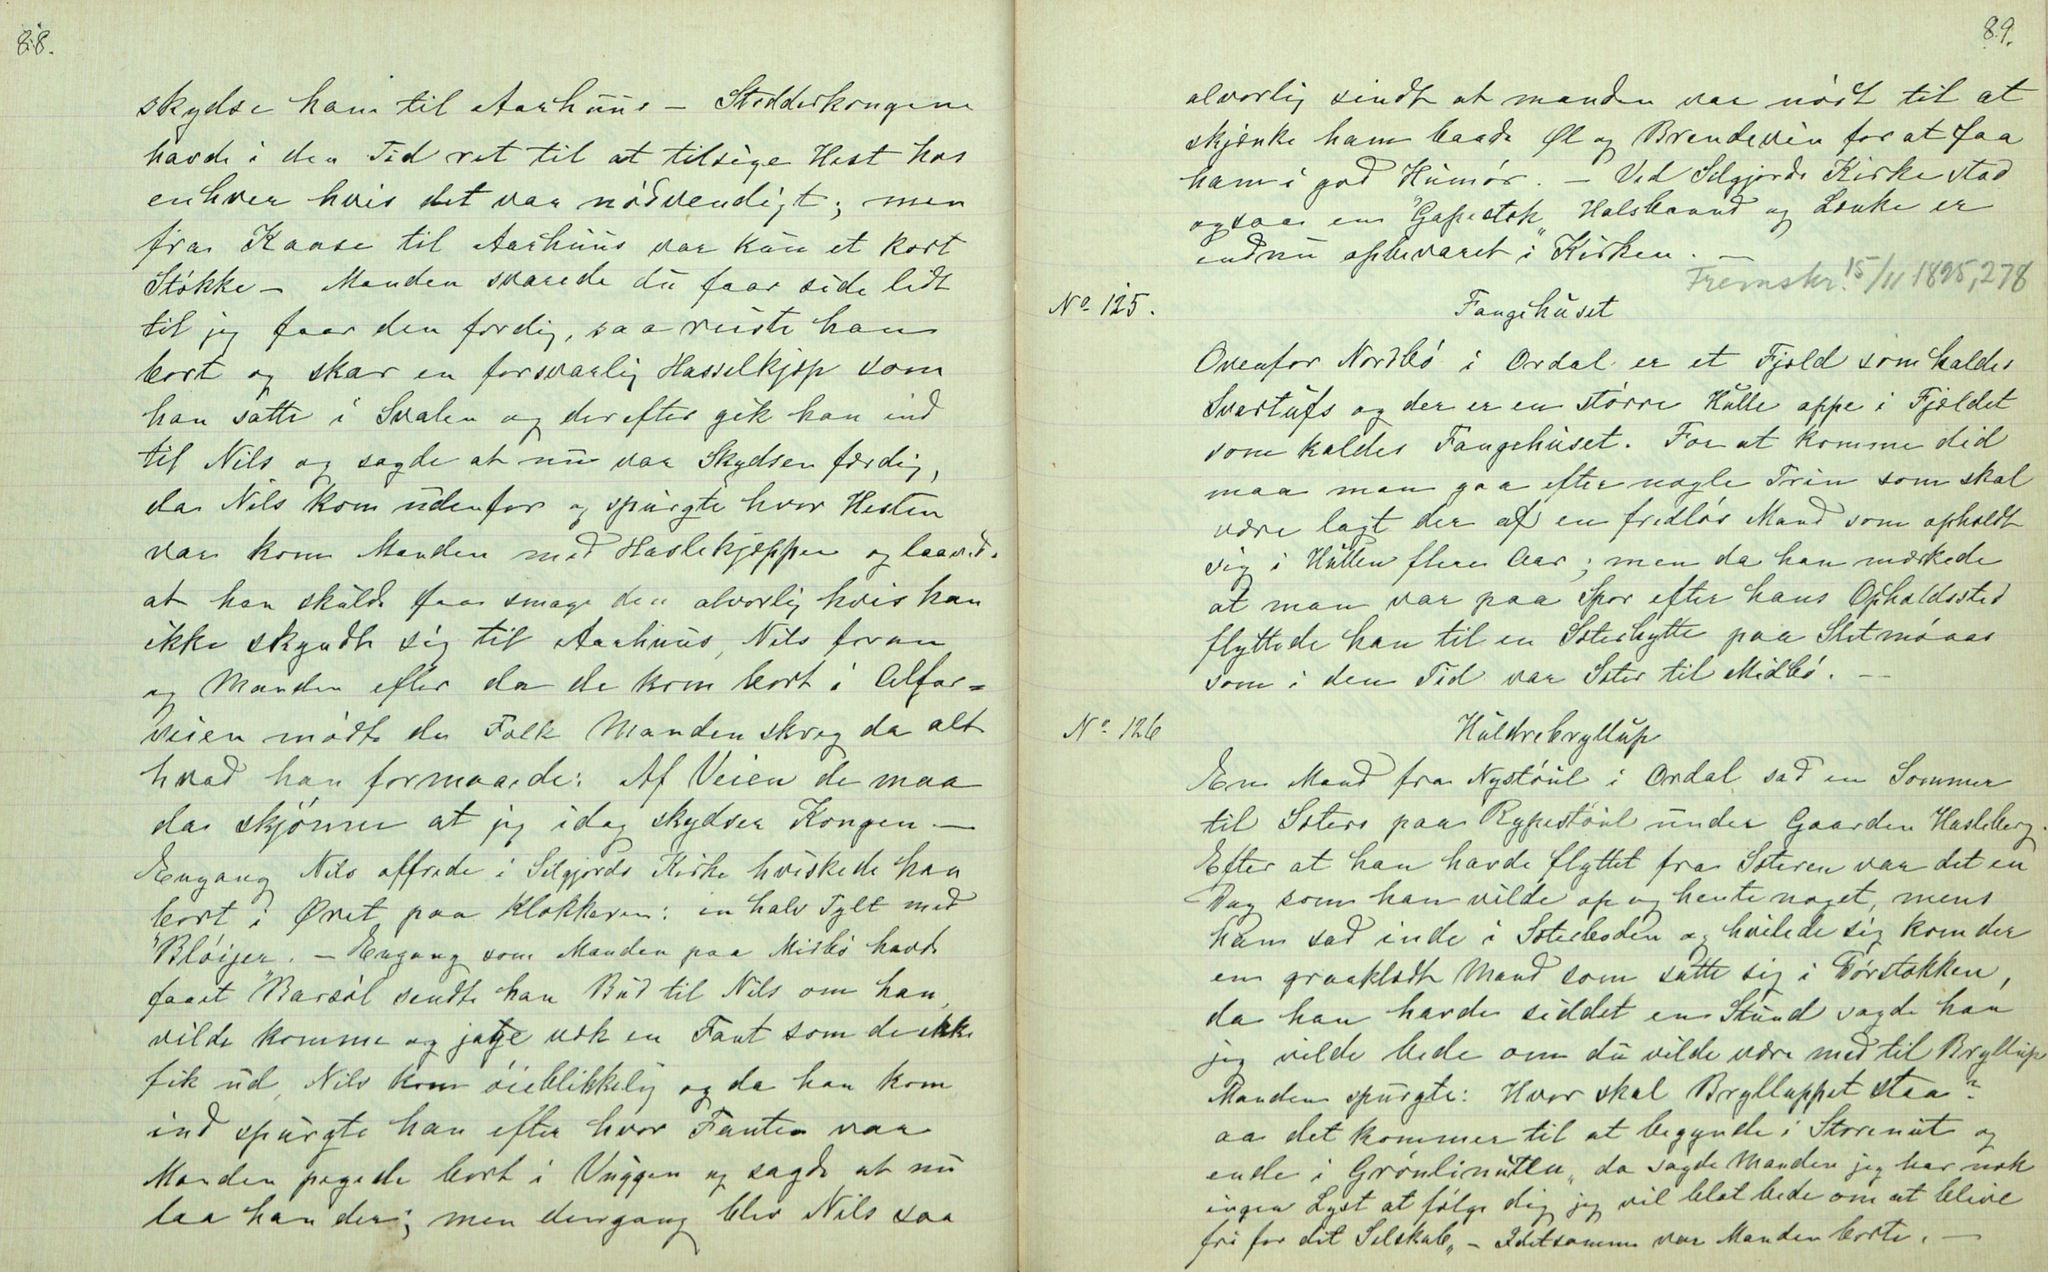 88.
skydse ham til Aarhuus – Stodderkongene
havde i den Tid ret til at tilsige Hest hos
enhver hvis det var nødvendigt; men
fra Kaase til Aarhuus var kun et kort
Støkke – Manden svarede du faar side lidt
til jeg faar den fordig, saa reiste han
bort og skar en forsvarlig Hasselkjæp som
han satte i Svalen og derefter gik han ind
til Nils og sagde at nu var Skydsen færdig,
da Nils kom udenfor og spurgte hvor Hesten
var kom Manden med Haslekjæppen og laavede
at han skulde faa smage den alvorlig hvis han
ikke skyndte sig til Aarhuus, Nils foran
og Manden efter da de kom bort i Alfar=
veien mødte de Folk Manden skreg da alt
hvad han formaaede: Af Veien de maa
da skjønne at jeg idag skydser Kongen –
Engang Nils offrede i Selgjords Kirke hviskede han
bort i Øret paa Klokkeren: en halv Tylt med
"Bløijer". – Engang som Manden paa Midbø havde
faaet "Barsøl sendte han Bud til Nils om han
vilde komme og jage væk en Fant som de ikke
fik ud, Nils kom øieblikkelig og da han kom
ind spurgte han efter hvor Fanten var
Manden pegede bort i Vuggen og sagde at nu
laa han der; men dengang blev Nils saa
89.
alvorlig sindt at manden var nødt til at
skjænke ham baade Øl og Brendevin for at faa
ham i god Humør. – Ved Selgjords Kirke stod
ogsaa en "Gapestok" Halsbaand og Lænke er
endnu opbevaret i Kirken. –
Fremskr. 15/11 1895, 278
No 125.
Fangehuset
Ovenfor Nordbø i Ordal er et Fjeld som kaldes
Svartufs og der er en større Hulle oppe i Fjeldet
som kaldes Fangehuset. For at komme did
maa man gaa efter nogle Trin som skal
være lagt der af en fredløs Mand som opholdt
sig i Hullen flere Aar; men da han mærkede
at man var paa Spor efter hans Opholdssted
flyttede han til en Sæterhytte paa Sletmøaas
som i den Tid var Sæter til Midbø. –
No 126
Huldrebryllup
En Mand fra Nystøul i Ordal sad en Sommer
til Sæters paa Rypestøul under Gaarden Hasleberg.
Efter at han havde flyttet fra Sæteren var det en
Dag som han vilde op og hente noget, mens
ham sad inde i Sæterboden og hvilede sig kom der
en graaklædt Mand som satte sig i Dørstokken,
da han havde siddet en Stund sagde han
jeg vilde bede om du vilde være med til Bryllup
Manden spurgte: Hvor skal Brylluppet staa?
aa det kommer til at begynde i Storenut og
ende i Grønlinutten" da sagde Manden jeg har nok
ingen Lyst at følge dig jeg vil blot bede om at blive
fri for dit Selskab" – Idetsamme var Manden borte. –